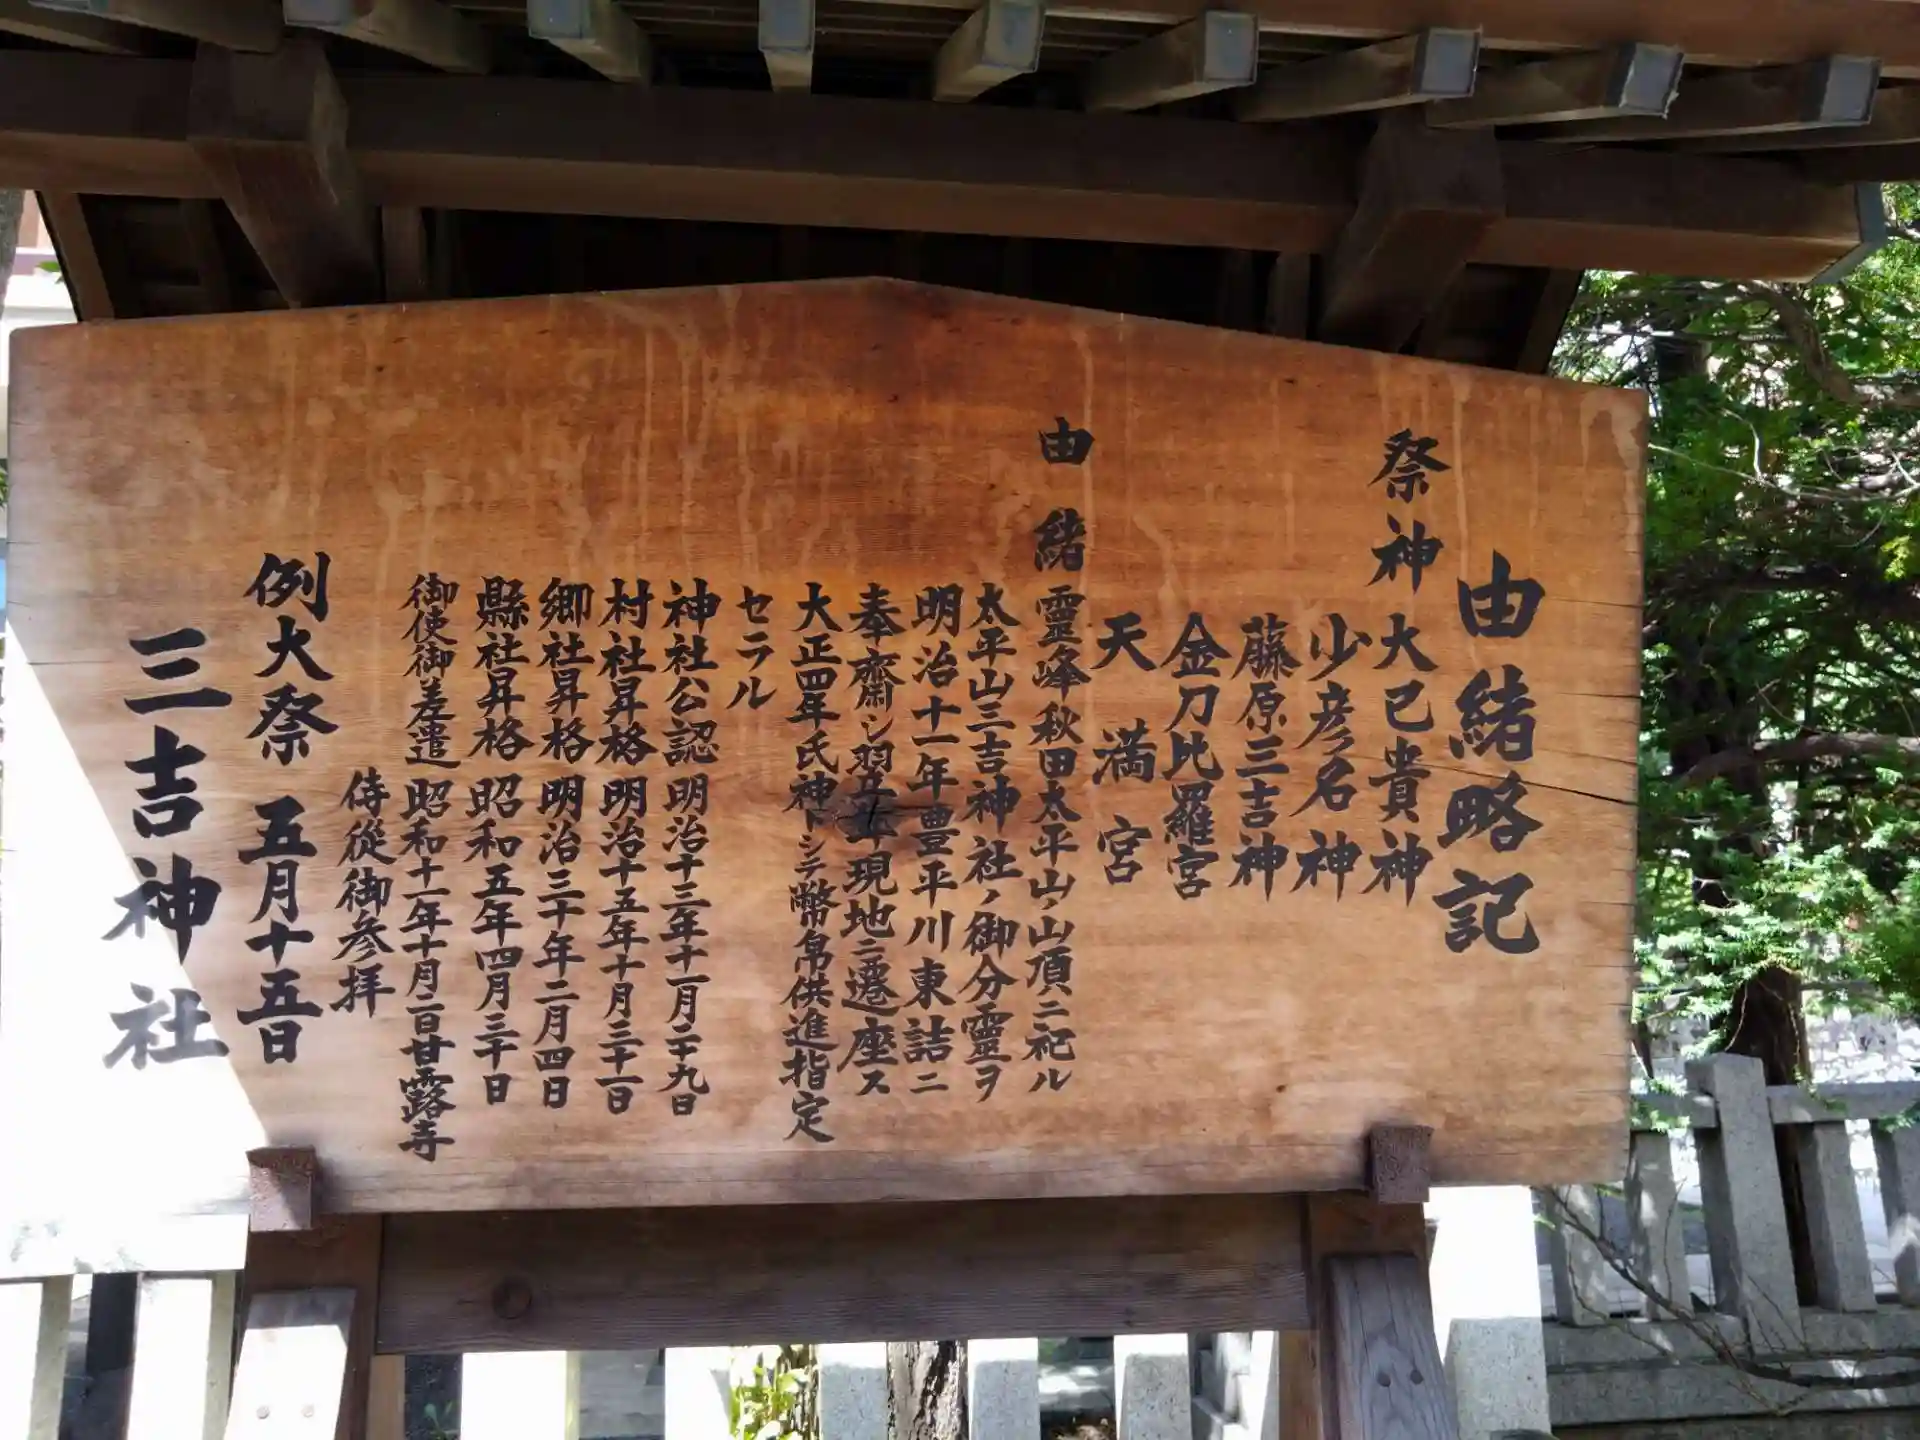 由緒略記
祭神 大己貴神
少彦名神
藤原三吉神
金刀比羅宮
天満宮
由緒 靈峰秋田太平山ノ山頂ニ祀ル
太平山三吉神社ノ御分靈ヲ
明治十一年豊平川東詰ニ
奉齋シ翌五年現地ニ遷座ス
大正四年氏神トシテ幣帛供進指定
セラル
神社公認 明治十三年十一月二十九日
村社昇格 明治十五年十月三十一日
郷社昇格 明治三十年二月四日
縣社昇格 昭和五年四月三十日
御使御差遣 昭和十一年十月二日甘露寺
侍從御参拝
例大祭 五月十五日
三吉神社